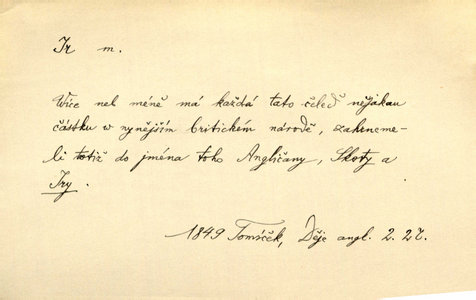 Ir m.
Více nel méně má každá tato čeleď nějakau
částku w nynějším britickém národě, zahrneme-
li totiž do jména toho Angličany, Skoty a
Iry.
1849 Tomíček, Děje angl. 2. 27.